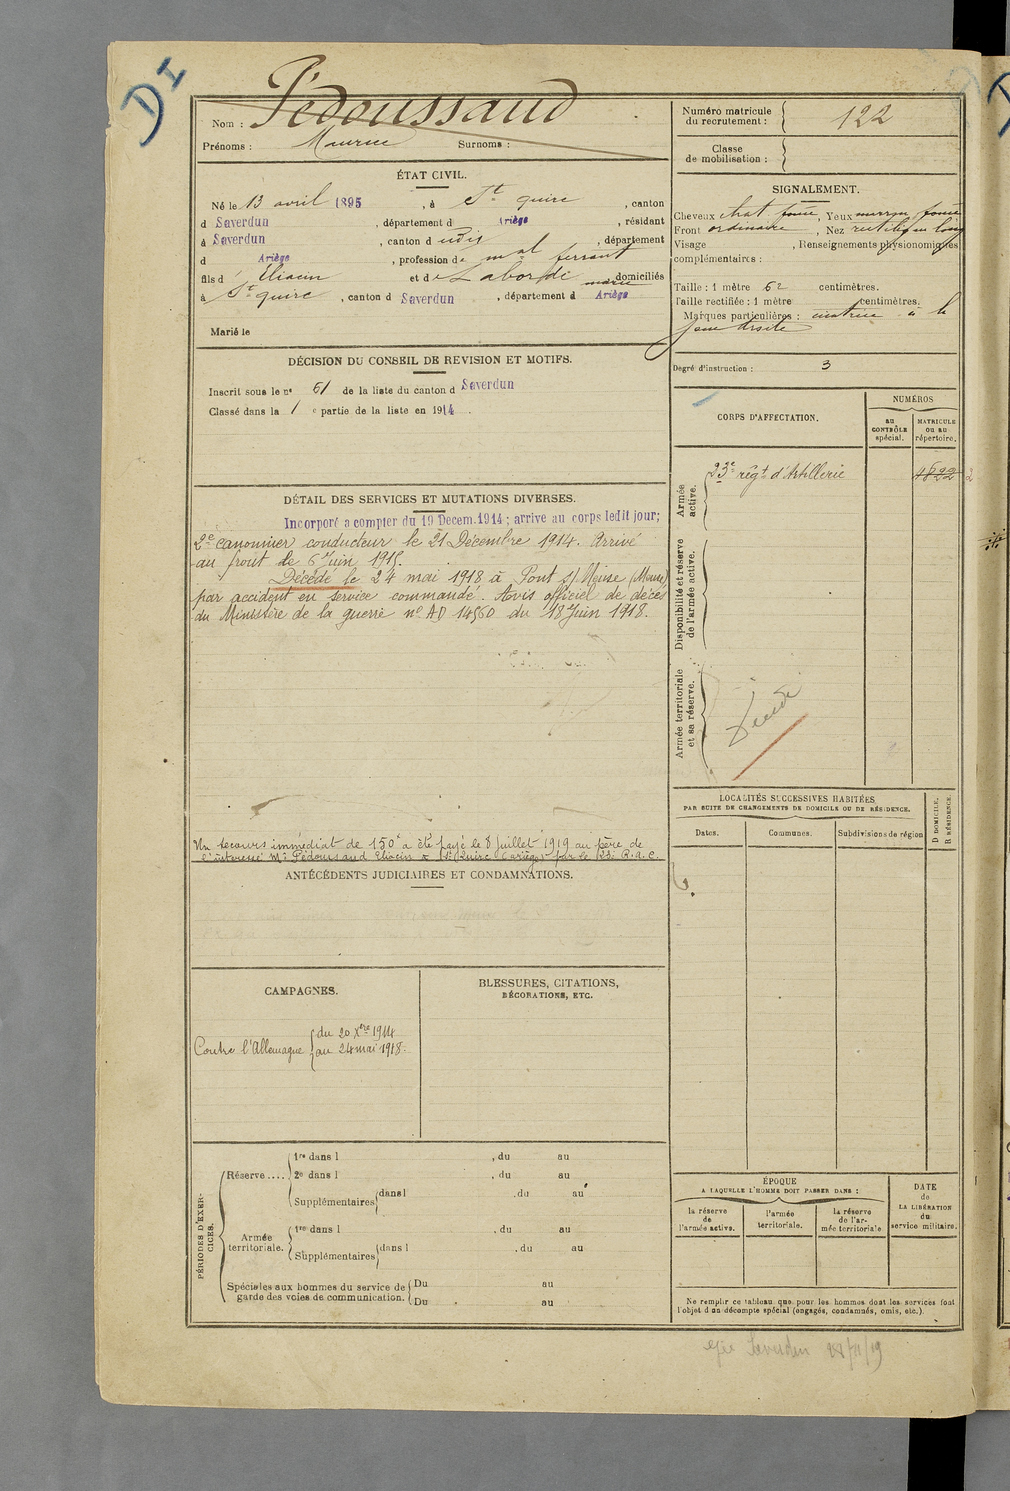 DI
Nom : Pédoussaud
Prénoms : Maurice Surnoms :
Numéro matricule du recrutement : 122
Classe de mobilisation :
ÉTAT CIVIL.
Né le 13 avril 1895, à St quirc, canton
d Saverdun, département d Ariège, résidant
à Saverdun, canton d udis, département
d Ariège, profession de mal ferrant
fils d' Eliacin et de Laborde marie, domiciliés
à St quirc, canton d Saverdun, département d Ariège
Marié le
SIGNALEMENT.
Cheveux chat foncé, Yeux marron foncé
Front ordinaire, Nez rectiligne long
Visage , Renseignements physionomiques
complémentaires :
Taille : 1 mètre 62 centimètres.
Taille rectifiée : 1 mètre centimètres.
Marques particulières : cicatrice à la
jambe droite
Degré d'instruction : 3
DÉCISION DU CONSEIL DE REVISION ET MOTIFS.
Inscrit sous le n° 61 de la liste du canton d Saverdun
Classé dans la 1 e partie de la liste en 1914.
DÉTAIL DES SERVICES ET MUTATIONS DIVERSES.
Incorporé a compter du 19 Decem.1914 ; arrive au corps ledit jour;
2e canonnier conducteur le 21 Décembre 1914. Arrivé
au front le 6 Juin 1915.
Décédé le 24 mai 1918 à Pont s/ Meuse (Meuse)
par accident en service commandé. Avis officiel de décès
du Ministère de la guerre n° AD 14560 du 18 Juin 1918.
Un secours immédiat de 150f a été payé le 8 Juillet 1919 au père de
l'intéressé Mr Pédoussaud Eliacin à St Quirc (Ariège) par le 23e R.a.c.
CORPS D'AFFECTATION.
NUMÉROS
au CONTRÔLE spécial.
MATRICULE ou au répertoire.
Armée active.
23e régt d'Artillerie 4822
Disponibilité et réserve de l'armée active.
Armée territoriale et sa réserve.
LOCALITÉS SUCCESSIVES HABITÉES
PAR SUITE DE CHANGEMENTS DE DOMICILE OU DE RÉSIDENCE.
Dates. Communes. Subdivisions de région
D DOMICILE.
R RÉSIDENCE.
ANTÉCÉDENTS JUDICIAIRES ET CONDAMNATIONS.
CAMPAGNES.
Contre l'Allemagne { du 20 Xbre 1914
au 24 mai 1918.
BLESSURES, CITATIONS,
DÉCORATIONS, ETC.
PÉRIODES D'EXERCICES.
Réserve ....
1re dans l , du au
2e dans l , du au
Supplémentaires dans l , du au
Armée territoriale.
1re dans l , du au
Supplémentaires dans l , du au
Spéciales aux hommes du service de
garde des voies de communication.
Du au
Du au
ÉPOQUE
A LAQUELLE L'HOMME DOIT PASSER DANS :
la réserve de l'armée active.
l'armée territoriale.
la réserve de l'armée territoriale
DATE de LA LIBÉRATION du service militaire.
Ne remplir ce tableau que pour les hommes dont les services font
l'objet d'un décompte spécial (engagés, condamnés, omis, etc.).